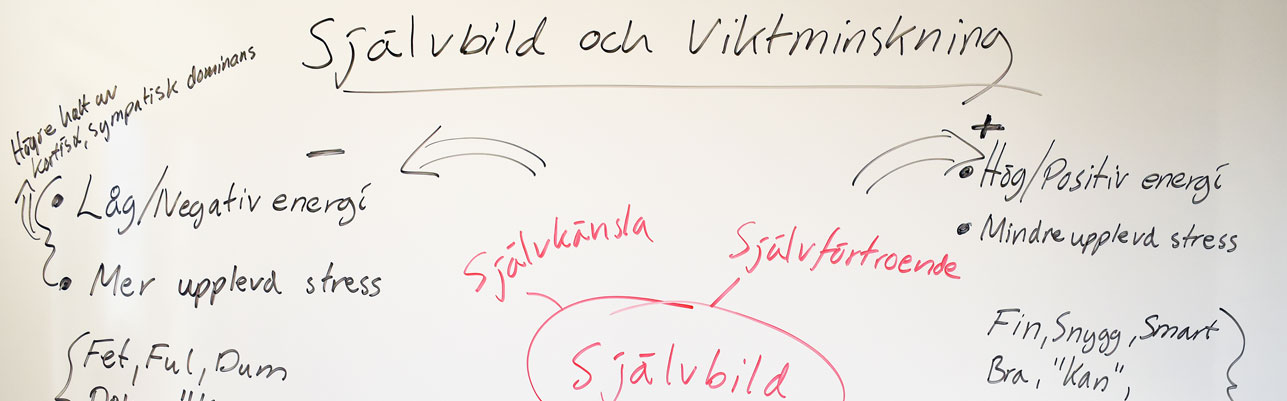 Självbild och Viktminskning
Högre halt av
kortisol, sympatisk dominans
−
• Låg/Negativ energi
• Mer upplevd stress
Fet, Ful, Dum
+
• Hög/Positiv energi
• Mindre upplevd stress
Fin, Snygg, Smart
Bra, "Kan",
Självkänsla
Självförtroende
Självbild